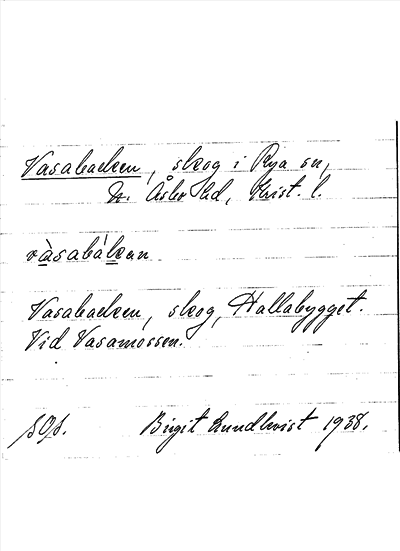 Vasabacken, skog i Rya sn,
N. Åsbo hd, Krist. l.
vàsabákan
Vasabacken, skog, Hallabygget.
Vid Vasamossen.
SOS.
Birgit Lundkvist 1938.